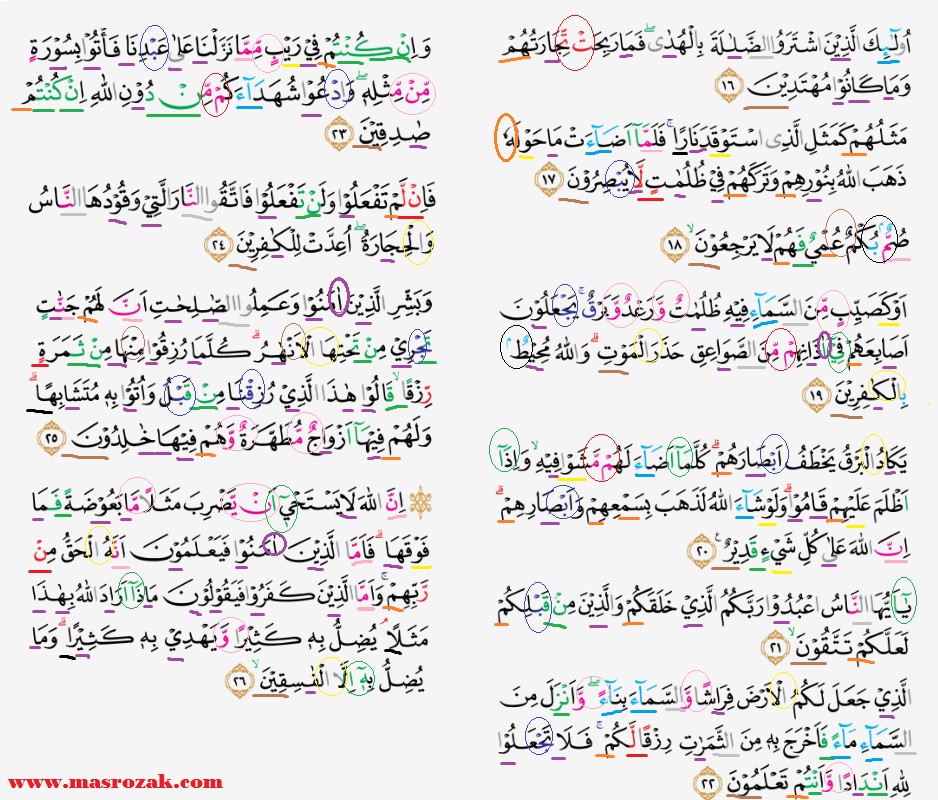 اُولٰۤىِٕكَ الَّذِيْنَ اشْتَرَوُا الضَّلٰلَةَ بِالْهُدٰىۖ فَمَا رَبِحَتْ تِّجَارَتُهُمْ
وَمَا كَانُوْا مُهْتَدِيْنَ ١٦
مَثَلُهُمْ كَمَثَلِ الَّذِى اسْتَوْقَدَ نَارًا ۚ فَلَمَّآ اَضَاۤءَتْ مَا حَوْلَهٗ
ذَهَبَ اللّٰهُ بِنُوْرِهِمْ وَتَرَكَهُمْ فِيْ ظُلُمٰتٍ لَّا يُبْصِرُوْنَ ١٧
صُمٌّ ۢ بُكْمٌ عُمْيٌ فَهُمْ لَا يَرْجِعُوْنَۙ ١٨
اَوْ كَصَيِّبٍ مِّنَ السَّمَاۤءِ فِيْهِ ظُلُمٰتٌ وَّرَعْدٌ وَّبَرْقٌۚ يَجْعَلُوْنَ
اَصَابِعَهُمْ فِيْٓ اٰذَانِهِمْ مِّنَ الصَّوَاعِقِ حَذَرَ الْمَوْتِۗ وَاللّٰهُ مُحِيْطٌۢ
بِالْكٰفِرِيْنَ ١٩
يَكَادُ الْبَرْقُ يَخْطَفُ اَبْصَارَهُمْ ۗ كُلَّمَآ اَضَاۤءَ لَهُمْ مَّشَوْا فِيْهِ ۙ وَاِذَآ
اَظْلَمَ عَلَيْهِمْ قَامُوْا ۗوَلَوْ شَاۤءَ اللّٰهُ لَذَهَبَ بِسَمْعِهِمْ وَاَبْصَارِهِمْ ۗ
اِنَّ اللّٰهَ عَلٰى كُلِّ شَيْءٍ قَدِيْرٌ ࣖ ٢٠
يٰٓاَيُّهَا النَّاسُ اعْبُدُوْا رَبَّكُمُ الَّذِيْ خَلَقَكُمْ وَالَّذِيْنَ مِنْ قَبْلِكُمْ
لَعَلَّكُمْ تَتَّقُوْنَۙ ٢١
الَّذِيْ جَعَلَ لَكُمُ الْاَرْضَ فِرَاشًا وَّالسَّمَاۤءَ بِنَاۤءً ۖوَّاَنْزَلَ مِنَ
السَّمَاۤءِ مَاۤءً فَاَخْرَجَ بِهٖ مِنَ الثَّمَرٰتِ رِزْقًا لَّكُمْ ۚ فَلَا تَجْعَلُوْا
لِلّٰهِ اَنْدَادًا وَّاَنْتُمْ تَعْلَمُوْنَ ٢٢
وَاِنْ كُنْتُمْ فِيْ رَيْبٍ مِّمَّا نَزَّلْنَا عَلٰى عَبْدِنَا فَأْتُوْا بِسُوْرَةٍ
مِّنْ مِّثْلِهٖ ۖ وَادْعُوْا شُهَدَاۤءَكُمْ مِّنْ دُوْنِ اللّٰهِ اِنْ كُنْتُمْ
صٰدِقِيْنَ ٢٣
فَاِنْ لَّمْ تَفْعَلُوْا وَلَنْ تَفْعَلُوْا فَاتَّقُوا النَّارَ الَّتِيْ وَقُوْدُهَا النَّاسُ
وَالْحِجَارَةُ ۖ اُعِدَّتْ لِلْكٰفِرِيْنَ ٢٤
وَبَشِّرِ الَّذِيْنَ اٰمَنُوْا وَعَمِلُوا الصّٰلِحٰتِ اَنَّ لَهُمْ جَنّٰتٍ
تَجْرِيْ مِنْ تَحْتِهَا الْاَنْهٰرُ ۗ كُلَّمَا رُزِقُوْا مِنْهَا مِنْ ثَمَرَةٍ
رِّزْقًا ۙ قَالُوْا هٰذَا الَّذِيْ رُزِقْنَا مِنْ قَبْلُ وَاُتُوْا بِهٖ مُتَشَابِهًا ۗ
وَلَهُمْ فِيْهَآ اَزْوَاجٌ مُّطَهَّرَةٌ وَّهُمْ فِيْهَا خٰلِدُوْنَ ٢٥
۞ اِنَّ اللّٰهَ لَا يَسْتَحْيٖٓ اَنْ يَّضْرِبَ مَثَلًا مَّا بَعُوْضَةً فَمَا
فَوْقَهَا ۗ فَاَمَّا الَّذِيْنَ اٰمَنُوْا فَيَعْلَمُوْنَ اَنَّهُ الْحَقُّ مِنْ
رَّبِّهِمْ ۚ وَاَمَّا الَّذِيْنَ كَفَرُوْا فَيَقُوْلُوْنَ مَاذَآ اَرَادَ اللّٰهُ بِهٰذَا
مَثَلًا ۘ يُضِلُّ بِهٖ كَثِيْرًا وَّيَهْدِيْ بِهٖ كَثِيْرًا ۗ وَمَا
يُضِلُّ بِهٖٓ اِلَّا الْفٰسِقِيْنَۙ ٢٦
www.masrozak.com